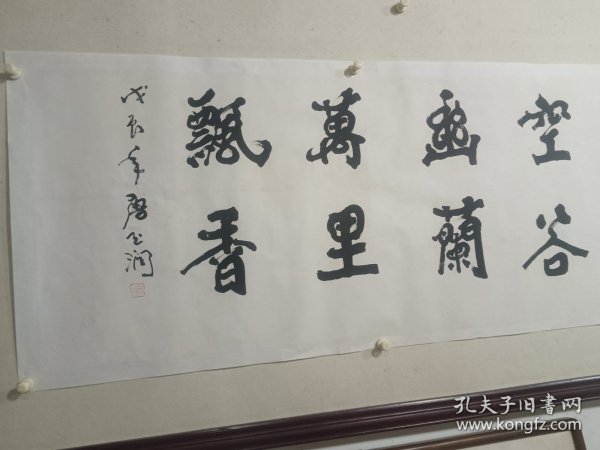 空谷
幽蘭
萬里
飄香
戊辰年唐玉潤
孔夫子旧書网
www.kongfz.com